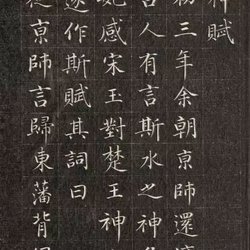 神賦
初三年余朝京師還
古人有言斯水之神名
妃感宋王對楚王神
遂作斯賦其詞曰
從京師言歸東藩背